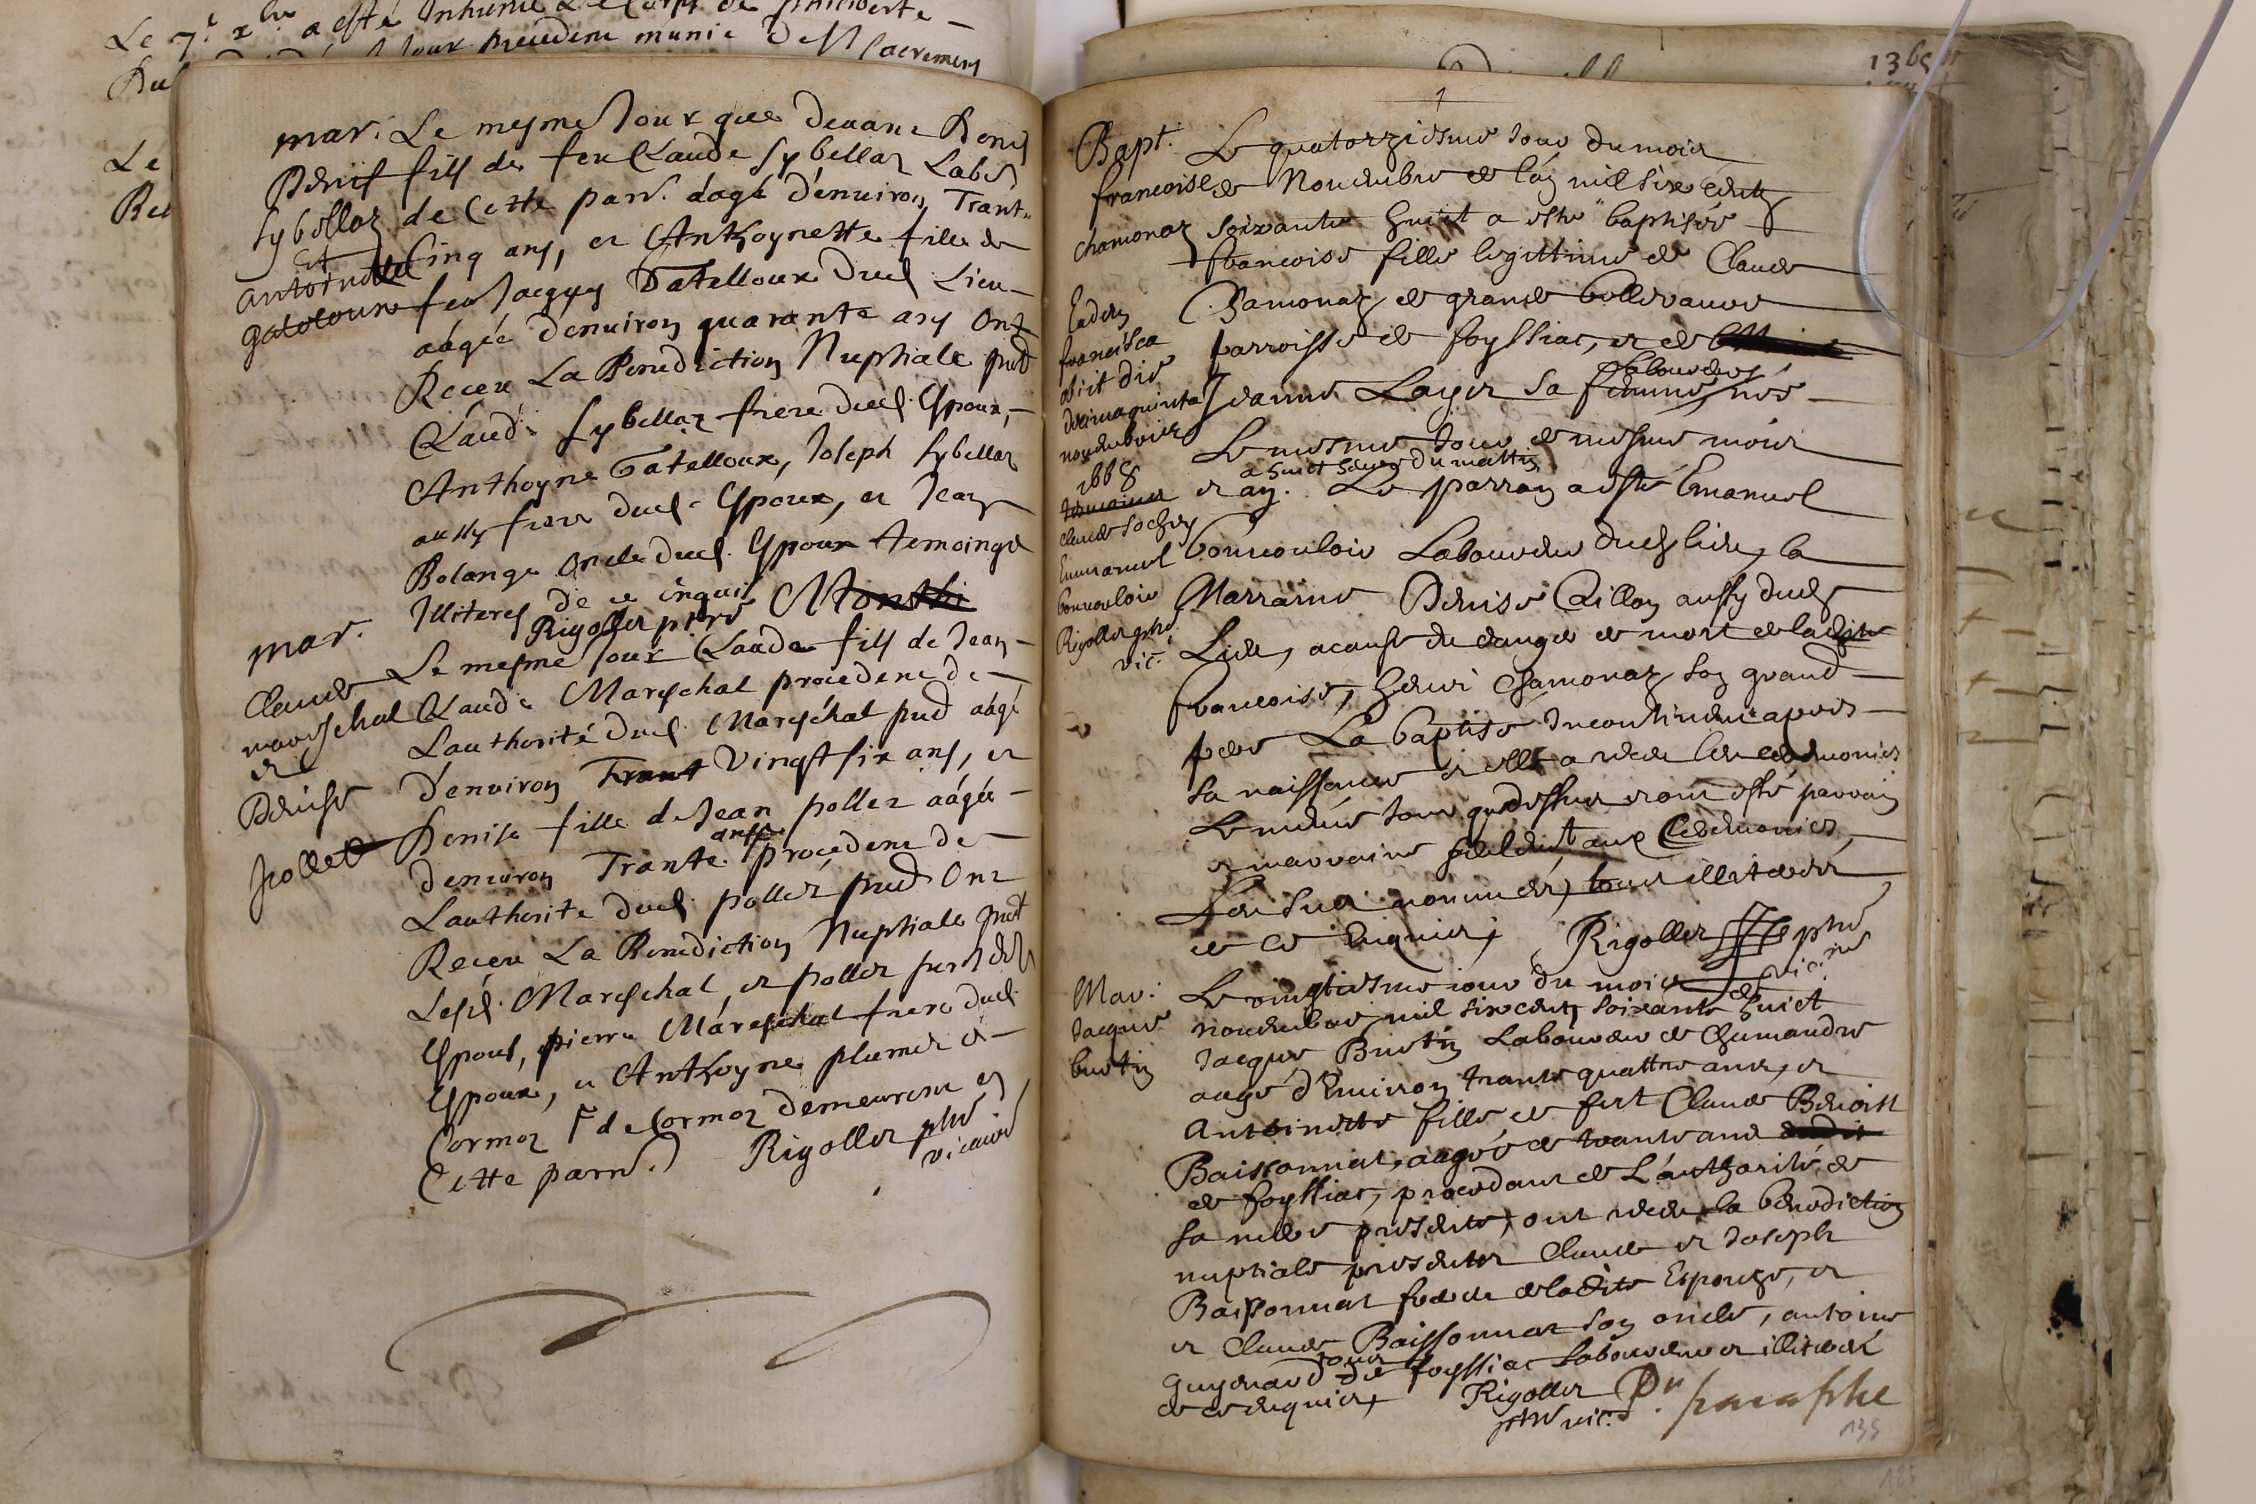 Le 7e xbre a esté Inhumé Le Corps de philiberte
jour precedent munie des sacremens
Le
mar. Le mesme Jour que devant Denis
Denis fils de feu Claude Sybellaz Labr
Sybellaz de Cette parr. aagé d'environ Trante
Et Cinq ans, et Anthoynette fille de
antoinette
gateloux feu Jacques Gatelloux dud Lieu
aagée d'environ quarante ans Ont
Receu La Benediction Nuptiale pnt
Claude Sybellaz frere dud. Espoux,
Anthoyne Gatelloux, Joseph Sybellaz
aussy frere dud. Espoux, et Jean
Bolange oncle dud. Espoux temoings
Illiteres de ce enquis
Rigollet ptre
mar.
Claude Le mesme Jour Claude fils de Jean
mareschal Claude Mareschal procedent de
et Lauthorité dud. Mareschal pnt aagé
Denise d'environ Trant Vingt six ans, et
pollet Denise fille de Jean pollet aagée
denviron Trante ans procedent de
Lauthorite dud. pollet pnt Ont
Receu La Benediction Nuptiale pnt
Lesd. Mareschal, et pollet peres des
Espoux, pierre Mareschal frere dud.
Espoux, et Anthoyne plumet et
Cormoz de Cormoz demeurent en
Cette parr. Rigollet ptre
vicaire
1365
1
Bapt. Le quatorziesme Jour du mois
francoise de Novembre de l'an mil six cents
chamonaz soixante huict a esté baptisée
francoise fille legittime de Claude
Chamonaz de grande Bellevavre
parroisse de foyssiat, et de
laboureurs
Jeanne Layer sa femme, née
Le mesme Jour et mesme mois
a huict heures du mattin
et an. Le parrain a esté Emanuel
Bonnouloir Laboureur dudt lieu, la
Marraine Denise Cillon aussy dudt
Lieu, a cause du danger de mort de ladite
francoise, henri Chamonaz son grand
pere La baptisé Incontinent apres
sa naissance et elle a receu les ceremonies
Le mesme Jour que dessus et ont esté parrain
et marraine aux Ceremonies,
Les sus nommés, tous illiteres
de ce Enquis, Rigollet ptre
vicaire
Eadem
francisca
obiit die
decima quinta
novembris
1668
temoins
claude
Emmanuel
bonnouloir
Rigollet ptre
vic.
Mar: Le vingtiesme jour du mois de
Jacques novembre mil six cents soixante huict
buotin Jacques Buotin Laboureur de Chemandre
aagé d'Environ trante quattre ans, et
Antoinette fille de feu Claude Benoist
Baissonnat, aagée de trante ans
de foyssiat, procedant de L'authorité de
sa mere presente, ont receu la benediction
nuptiale presents Claude et Joseph
Baissonnat freres de ladite Espouze, et
et Claude Baissonnat son oncle, antoine
guyenard tous de foyssiat Laboureurs et illiteres
de ce enquis, Rigollet Pn. paraphe
ptre vic.
135